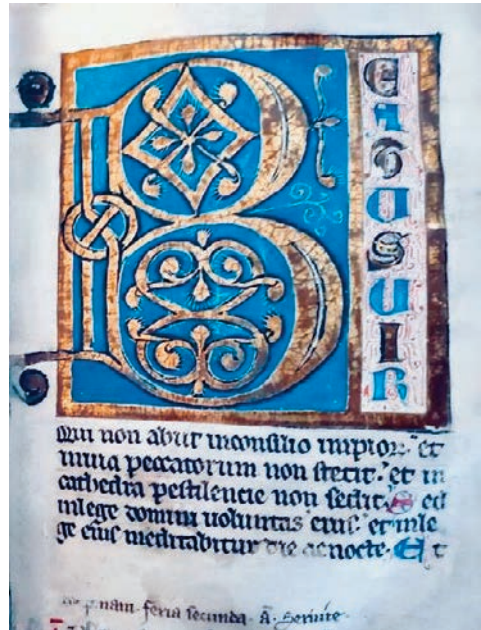 BEATUSUIR
Qui non abiit inconsilio impior. et
inuia peccatorum non stetit: et in
cathedra pestilencie non sedit. Sed
inlege domini uoluntas eius: et inle
ge eius meditabitur die ac nocte. Et
feria secunda. a. Seruire